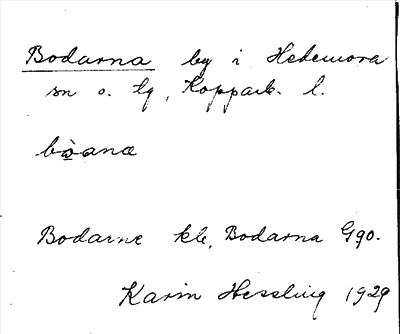 Bodarna by i Hedemora
sn o. tg, Kopparb. l.
bo̠ana
Bodarne kb, Bodarna Ggo.
Karin Hessling 1929